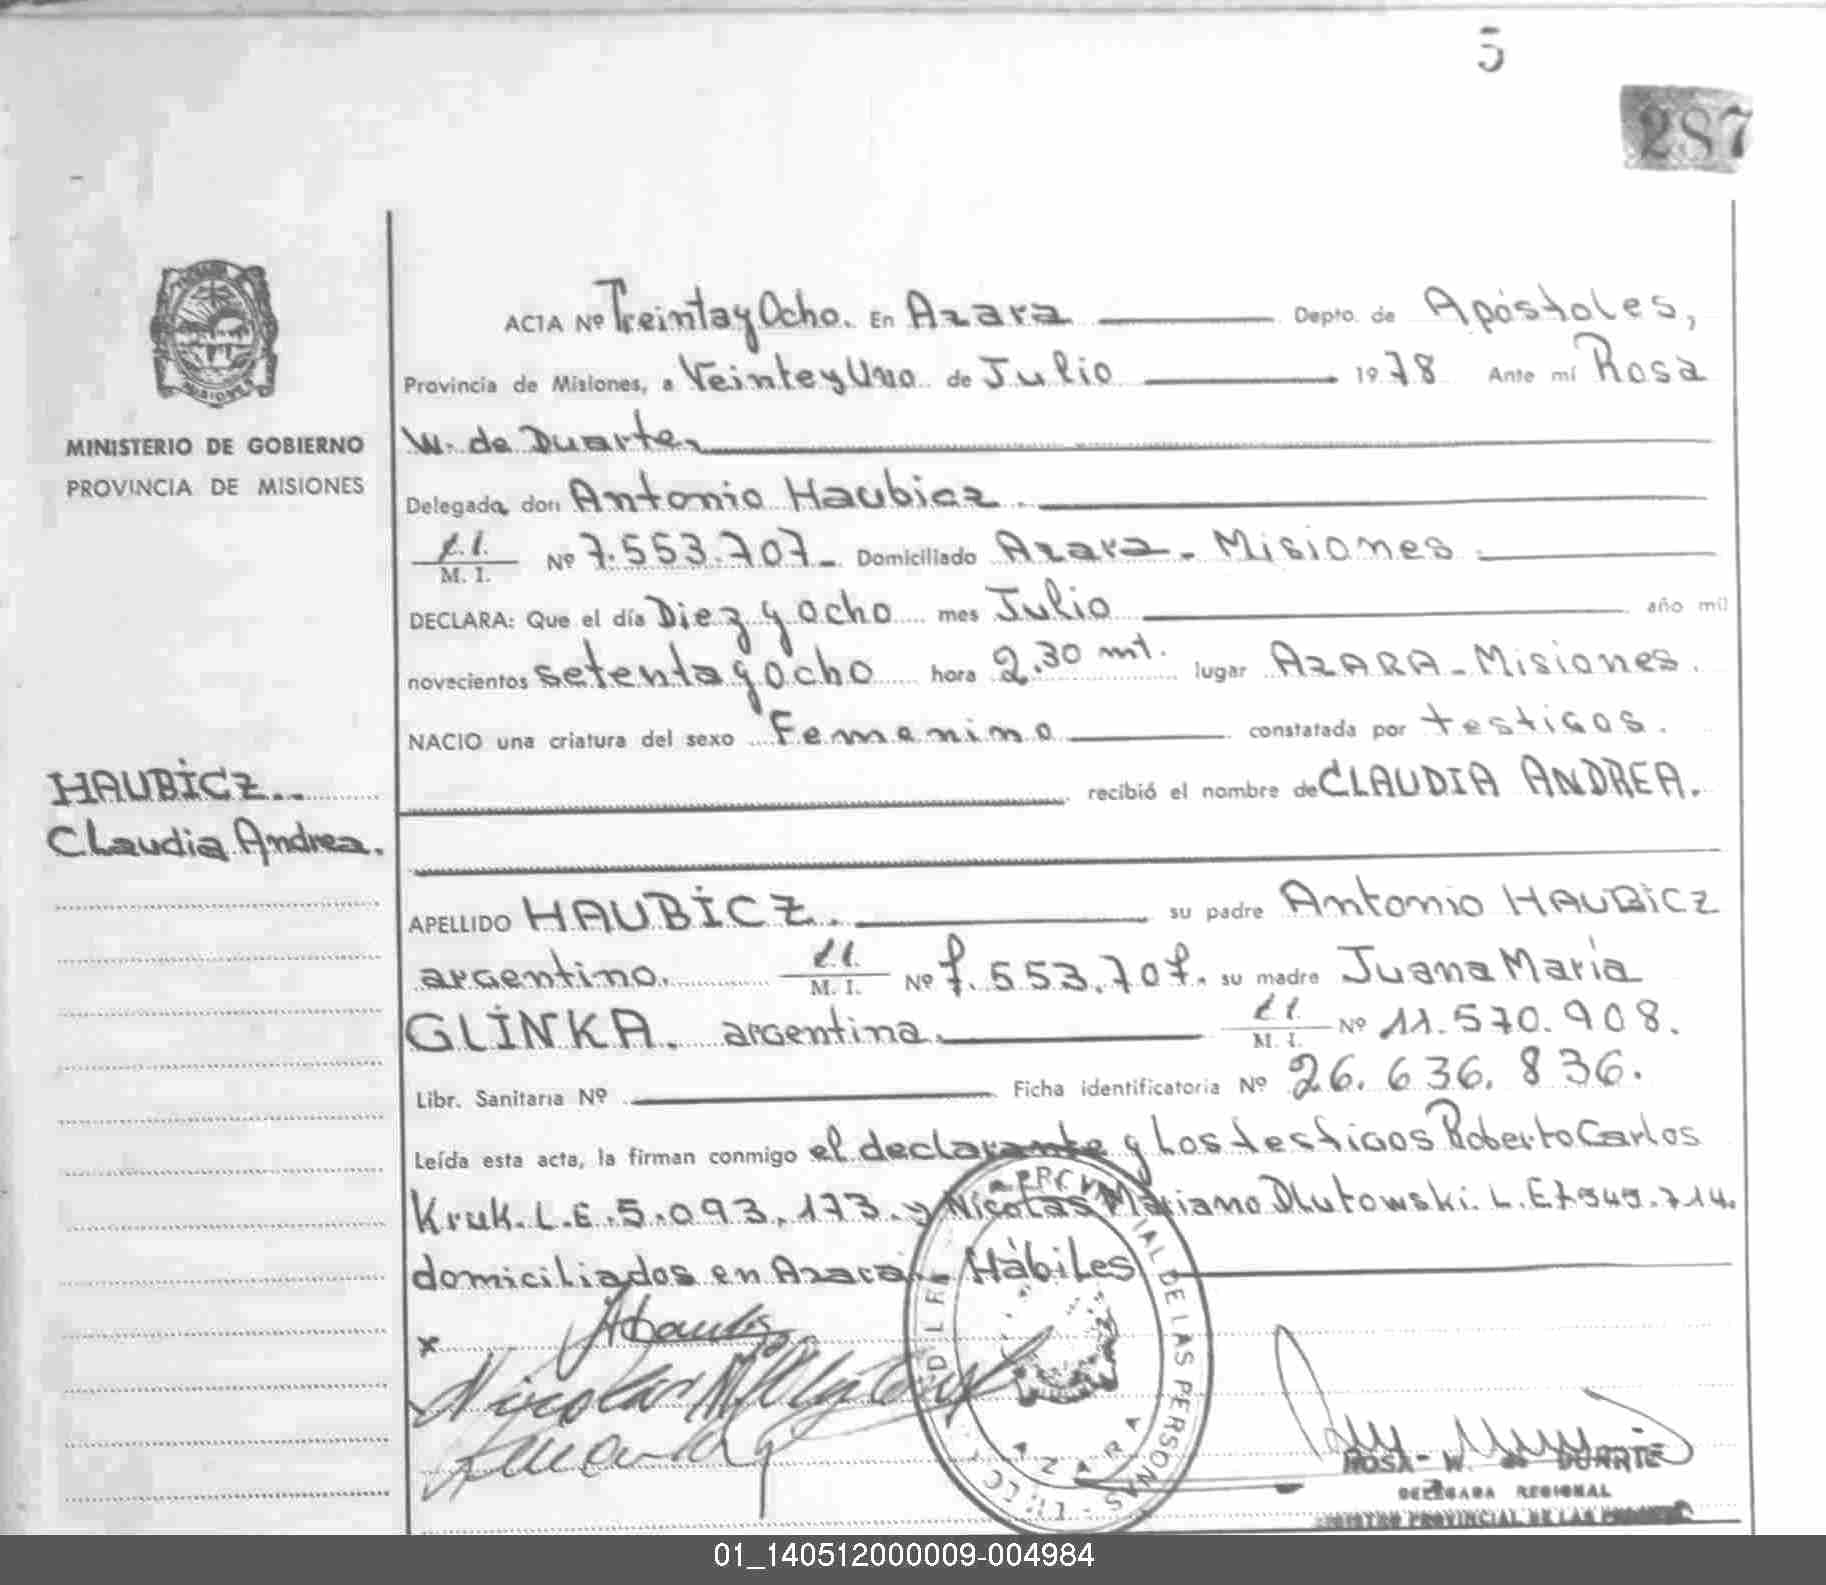 5
287
MINISTERIO DE GOBIERNO
PROVINCIA DE MISIONES
HAUBICZ.
Claudia Andrea.
ACTA Nº Treinta y Ocho. En Azara Depto. de Apóstoles,
Provincia de Misiones, a Veinte y Uno de Julio 1978 Ante mí Rosa
W. de Duarte,
Delegada, don Antonio Haubicz.
M. I. Nº 7.553.707_ Domiciliado Azara - Misiones.
DECLARA: Que el día Diez y ocho mes Julio año mil
novecientos setenta y ocho hora 2.30 mt. lugar AZARA - Misiones.
NACIO una criatura del sexo Femenino constatada por testigos.
recibió el nombre de CLAUDIA ANDREA.
APELLIDO HAUBICZ. su padre Antonio HAUBICZ
argentino. M. I. Nº 7.553.707. su madre Juana María
GLINKA. argentina. M. I. Nº 11.570.908.
Libr. Sanitaria Nº Ficha identificatoria Nº 26.636.836.
Leída esta acta, la firman conmigo el declarante y Los testigos Roberto Carlos
Kruk. L.E. 5.093.173. y Nicolas Mariano Dlutowski. L.E.
domiciliados en Azara. Hábiles
DE LAS PERSONAS
AZARA
ROSA W. de DUARTE
DELEGADA REGIONAL
REGISTRO PROVINCIAL DE LAS PERSONAS
01_140512000009-004984